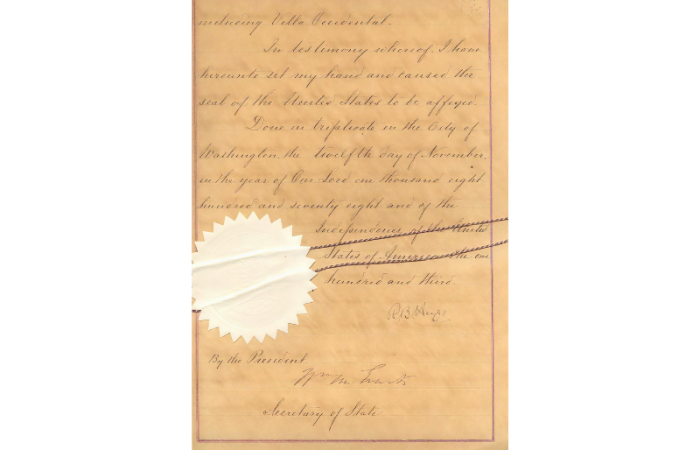 including Villa Occidental.
In testimony whereof, I have
hereunto set my hand and caused the
seal of the United States to be affixed.
Done in triplicate in the City of
Washington, the twelfth day of November,
in the year of Our Lord one thousand eight
hundred and seventy eight and of the
Independence of the United
States of America the one
hundred and third.
R. B. Hayes
By the President
Wm M. Evarts
Secretary of State